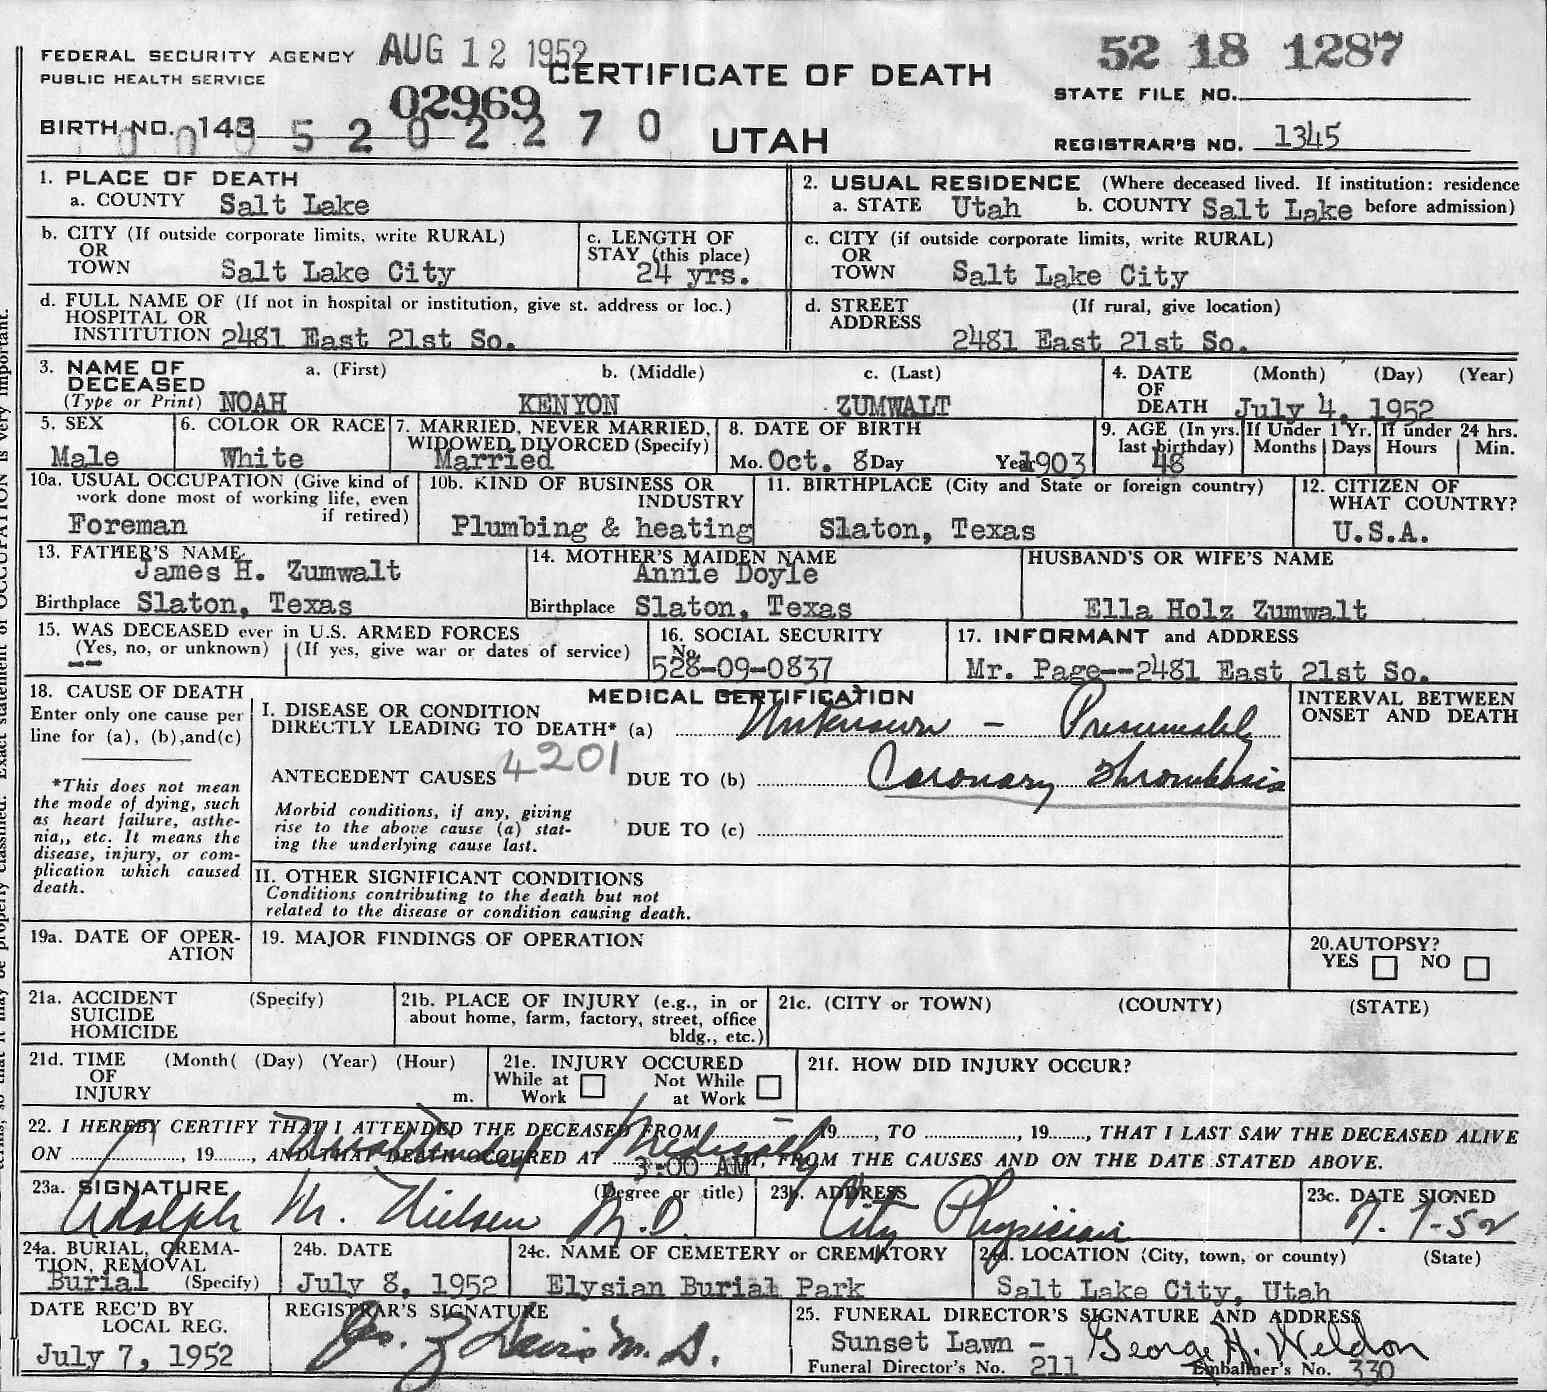 FEDERAL SECURITY AGENCY AUG 12 1952 CERTIFICATE OF DEATH 52 18 1287
PUBLIC HEALTH SERVICE STATE FILE NO.
02969
BIRTH NO. 143 5 2 0 2 2 7 0 UTAH REGISTRAR'S NO. 1345
1. PLACE OF DEATH
a. COUNTY Salt Lake
2. USUAL RESIDENCE (Where deceased lived. If institution: residence
a. STATE Utah b. COUNTY Salt Lake before admission)
b. CITY (If outside corporate limits, write RURAL)
OR
TOWN Salt Lake City
c. LENGTH OF
STAY (this place)
24 yrs.
c. CITY (if outside corporate limits, write RURAL)
OR
TOWN Salt Lake City
d. FULL NAME OF (If not in hospital or institution, give st. address or loc.)
HOSPITAL OR
INSTITUTION 2481 East 21st So.
d. STREET (If rural, give location)
ADDRESS
2481 East 21st So.
3. NAME OF a. (First) b. (Middle) c. (Last)
DECEASED
(Type or Print) NOAH KENYON ZUMWALT
4. DATE (Month) (Day) (Year)
OF
DEATH July 4, 1952
5. SEX
Male
6. COLOR OR RACE
White
7. MARRIED, NEVER MARRIED,
WIDOWED, DIVORCED (Specify)
Married
8. DATE OF BIRTH
Mo. Oct. 8 Day Year 1903
9. AGE (In yrs.
last birthday)
48
If Under 1 Yr.
Months Days
If under 24 hrs.
Hours Min.
10a. USUAL OCCUPATION (Give kind of
work done most of working life, even
if retired)
Foreman
10b. KIND OF BUSINESS OR
INDUSTRY
Plumbing & heating
11. BIRTHPLACE (City and State or foreign country)
Slaton, Texas
12. CITIZEN OF
WHAT COUNTRY?
U.S.A.
13. FATHER'S NAME
James H. Zumwalt
Birthplace Slaton, Texas
14. MOTHER'S MAIDEN NAME
Annie Doyle
Birthplace Slaton, Texas
HUSBAND'S OR WIFE'S NAME
Ella Holz Zumwalt
15. WAS DECEASED ever in U.S. ARMED FORCES
(Yes, no, or unknown) (If yes, give war or dates of service)
--
16. SOCIAL SECURITY
No.
528-09-0837
17. INFORMANT and ADDRESS
Mr. Page--2481 East 21st So.
18. CAUSE OF DEATH
Enter only one cause per
line for (a), (b),and(c)
*This does not mean
the mode of dying, such
as heart failure, asthe-
nia,, etc. It means the
disease, injury, or com-
plication which caused
death.
MEDICAL CERTIFICATION
I. DISEASE OR CONDITION
DIRECTLY LEADING TO DEATH* (a) Unknown - Presumably
ANTECEDENT CAUSES 4201 DUE TO (b) Coronary Thrombosis
Morbid conditions, if any, giving
rise to the above cause (a) stat-
ing the underlying cause last.
DUE TO (c)
INTERVAL BETWEEN
ONSET AND DEATH
II. OTHER SIGNIFICANT CONDITIONS
Conditions contributing to the death but not
related to the disease or condition causing death.
19a. DATE OF OPER-
ATION
19. MAJOR FINDINGS OF OPERATION
20.AUTOPSY?
YES NO
21a. ACCIDENT (Specify)
SUICIDE
HOMICIDE
21b. PLACE OF INJURY (e.g., in or
about home, farm, factory, street, office
bldg., etc.)
21c. (CITY or TOWN) (COUNTY) (STATE)
21d. TIME (Month( (Day) (Year) (Hour)
OF
INJURY m.
21e. INJURY OCCURED
While at Not While
Work at Work
21f. HOW DID INJURY OCCUR?
22. I HEREBY CERTIFY THAT I ATTENDED THE DECEASED FROM 19......, TO ................, 19......, THAT I LAST SAW THE DECEASED ALIVE
Unattended Medically
ON ................, 19......, AND THAT DEATH OCCURED AT 3:00 AM M, FROM THE CAUSES AND ON THE DATE STATED ABOVE.
23a. SIGNATURE (Degree or title)
Adolph M. Nielsen M.D.
23b. ADDRESS
City Physician
23c. DATE SIGNED
7-7-52
24a. BURIAL, CREMA-
TION, REMOVAL
Burial (Specify)
24b. DATE
July 8, 1952
24c. NAME OF CEMETERY or CREMATORY
Elysian Burial Park
24d. LOCATION (City, town, or county) (State)
Salt Lake City, Utah
DATE REC'D BY
LOCAL REG.
July 7, 1952
REGISTRAR'S SIGNATURE
M.D.
25. FUNERAL DIRECTOR'S SIGNATURE AND ADDRESS
Sunset Lawn - George H. Weldon
Funeral Director's No. 211 Embalmer's No. 330